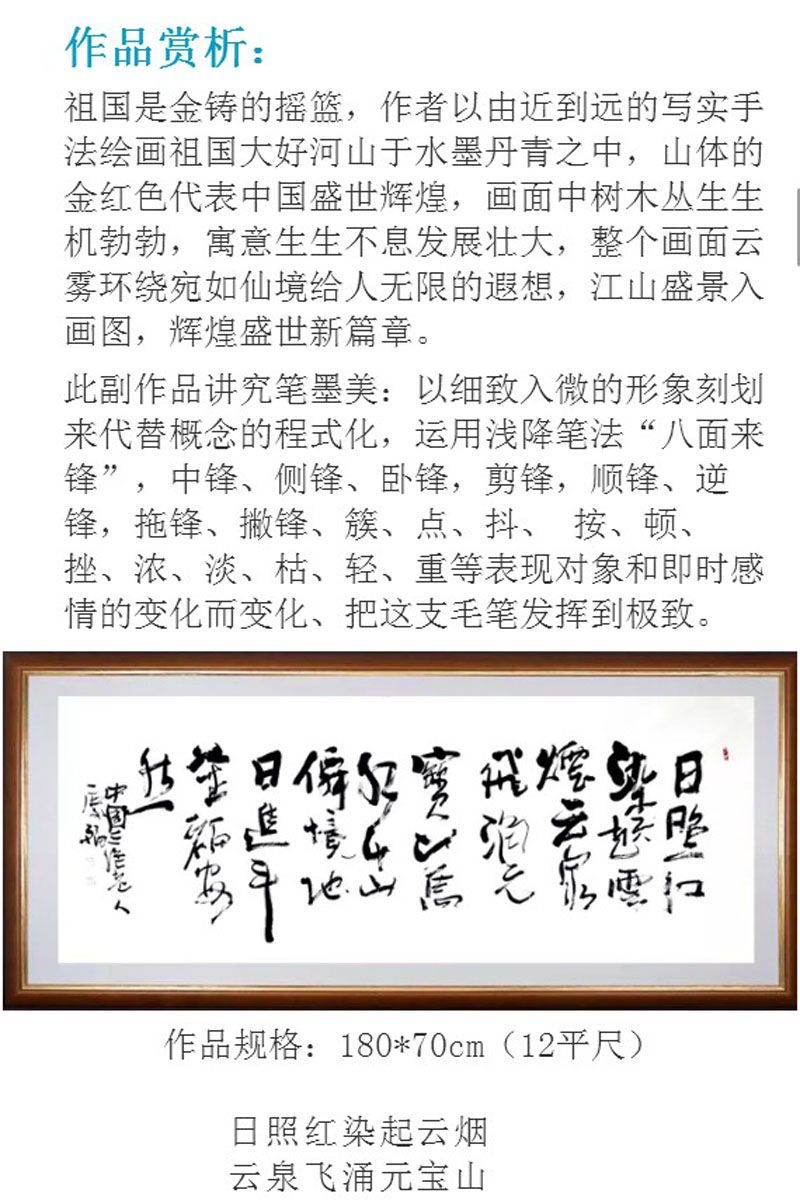 作品赏析：
祖国是金铸的摇篮，作者以由近到远的写实手
法绘画祖国大好河山于水墨丹青之中，山体的
金红色代表中国盛世辉煌，画面中树木丛生生
机勃勃，寓意生生不息发展壮大，整个画面云
雾环绕宛如仙境给人无限的遐想，江山盛景入
画图，辉煌盛世新篇章。
此副作品讲究笔墨美：以细致入微的形象刻划
来代替概念的程式化，运用浅降笔法“八面来
锋”，中锋、侧锋、卧锋，剪锋，顺锋、逆
锋，拖锋、撇锋、簇、点、抖、 按、顿、
挫、浓、淡、枯、轻、重等表现对象和即时感
情的变化而变化、把这支毛笔发挥到极致。
日照红
染起雲
煙云泉
飛涌元
寶山
山
境地
日進斗
金
中國
人
作品规格：180*70cm（12平尺）
日照红染起云烟
云泉飞涌元宝山